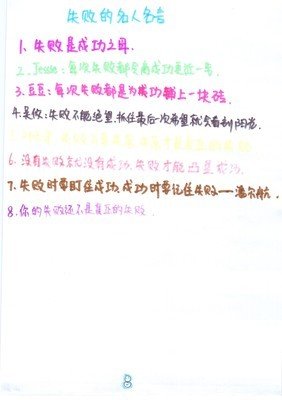 失败的名人名言
1、失败是成功之母.
2、Jessie:每次失败都会离成功更近一步.
3、豆豆:每次失败都是为成功铺上一块砖.
4、 :失败不能绝望,抓住最后一次希望就会看到阳光.
6、没有失败就没有成功,失败才能凸显成功.
7、失败时要盯住成功,成功时要记住失败——潘尔航.
8、你的失败还不是真正的失败.
8